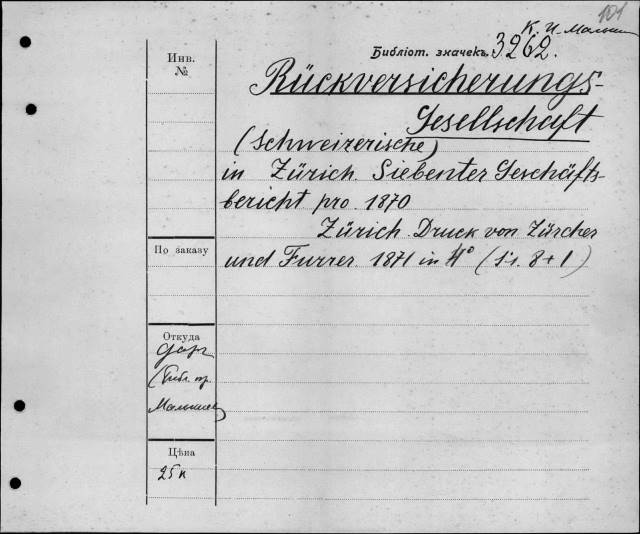 101
К. И. Малыш
Библіот. значекъ. 3262.
Инв.
№
Rückversicherungs-
Gesellschaft
(Schweizerische)
in Zürich. Siebenter Geschäfts-
bericht pro 1870
Zürich. Druck von Zürcher
und Furrer 1871 in 4° (S. 8+1)
По заказу
Откуда
Даръ
(Библ. пр.
Малышев)
Цѣна
25 к